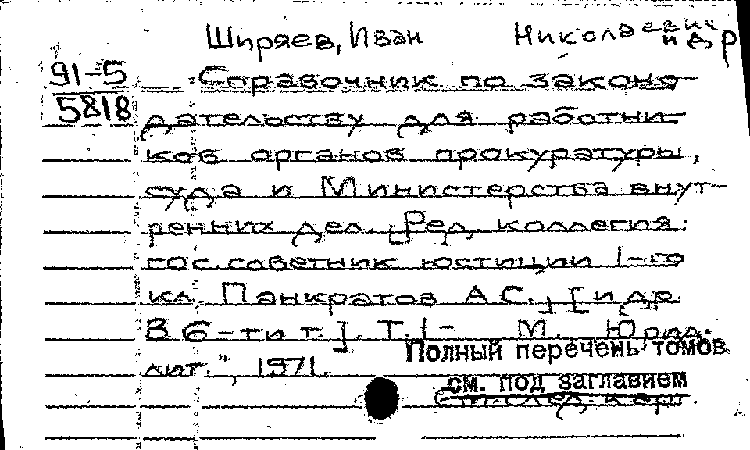 Ширяев, Иван Николаевич
и др
91-5
5818
Справочник по законо-
дательству для работни-
ков органов прокуратуры,
суда и Министерства внут-
ренних дел. [Ред. коллегия:
гос. советник юстиции 1-го
кл. Панкратов А.С.] [и др.
В 6-ти т.]. Т. 1- М. Юрид.
лит.", 1971.
Полный перечень томов
см. под заглавием
См. след. карт.